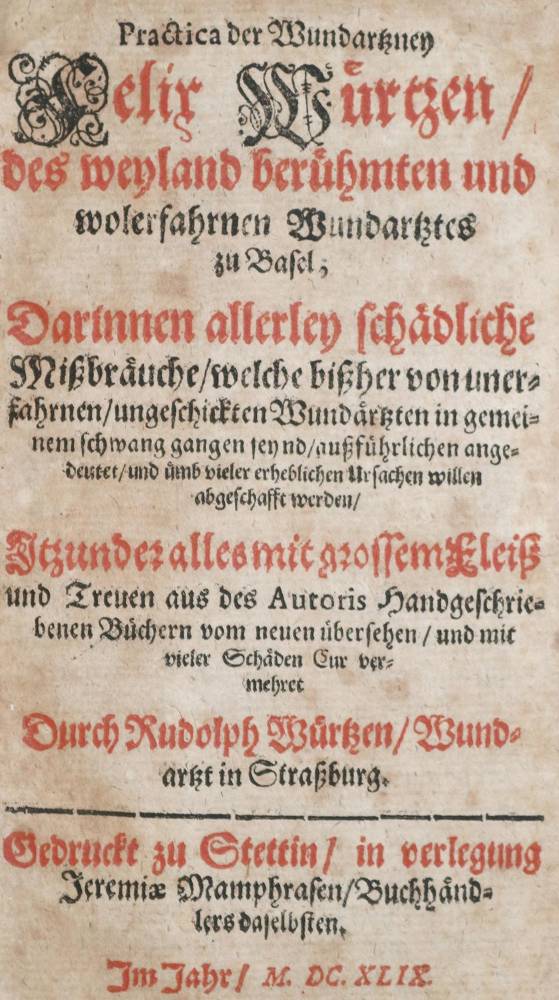 Practica der Wundartzney
Felix Würtzen /
des weyland berühmten und
wolerfahrnen Wundartztes
zu Basel,
Darinnen allerley schädliche
Mißbräuche/welche bißher von uner-
fahrnen/ungeschickten Wundärtzten in gemei-
nem schwang gangen seynd/außführlichen ange-
deutet/und ümb vieler erheblichen Ursachen willen
abgeschafft werden/
Itzunder alles mit grossem Fleiß
und Treuen aus des Autoris Handgeschrie-
benen Büchern vom neuen übersehen / und mit
vieler Schäden Cur ver-
mehret
Durch Rudolph Würtzen/ Wund-
artzt in Straßburg.
Gedruckt zu Stettin/ in verlegung
Jeremiæ Mamphrasen/Buchhänd-
lers daselbsten.
Im Jahr/ M. DC. XLIX.